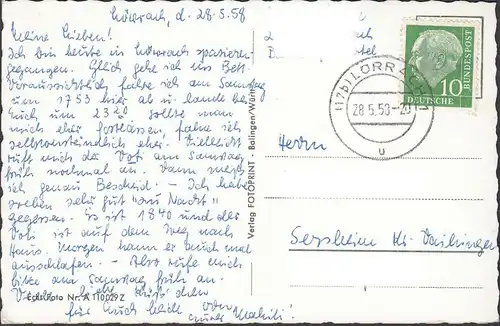 Lörrach d. 28.5.58
Meine Lieben!
Ich bin heute in Lörrach spazieren-
gegangen. Gleich gehe ich ins Bett
Voraussichtlich fahre ich am Samstag
um 1753 hier ab u. lande bei
Euch um 2328. Sollte man
mich eher fortlassen, fahre ich
selbstverständlich eher. Vielleicht
ruft mich der Vati am Samstag
früh nochmal an. Dann
ich genau Bescheid. – Ich habe
soeben sehr gut "zu Nacht"
gegessen. Es ist 1840 und der
Vati ist auf dem Weg nach
Haus. Morgen kann er auch mal
ausschlafen. – Also rufe mich
bitte am Samstag früh an.
Viele liebe
für Euch beide
Eure
Echt Foto Nr. A 110029 Z
Verlag FOTOPRINT · Balingen/Württ
(17b) LÖRRACH
28.5.58-20
u
10
DEUTSCHE
BUNDESPOST
Herrn
Sersheim Kr. Vaihingen